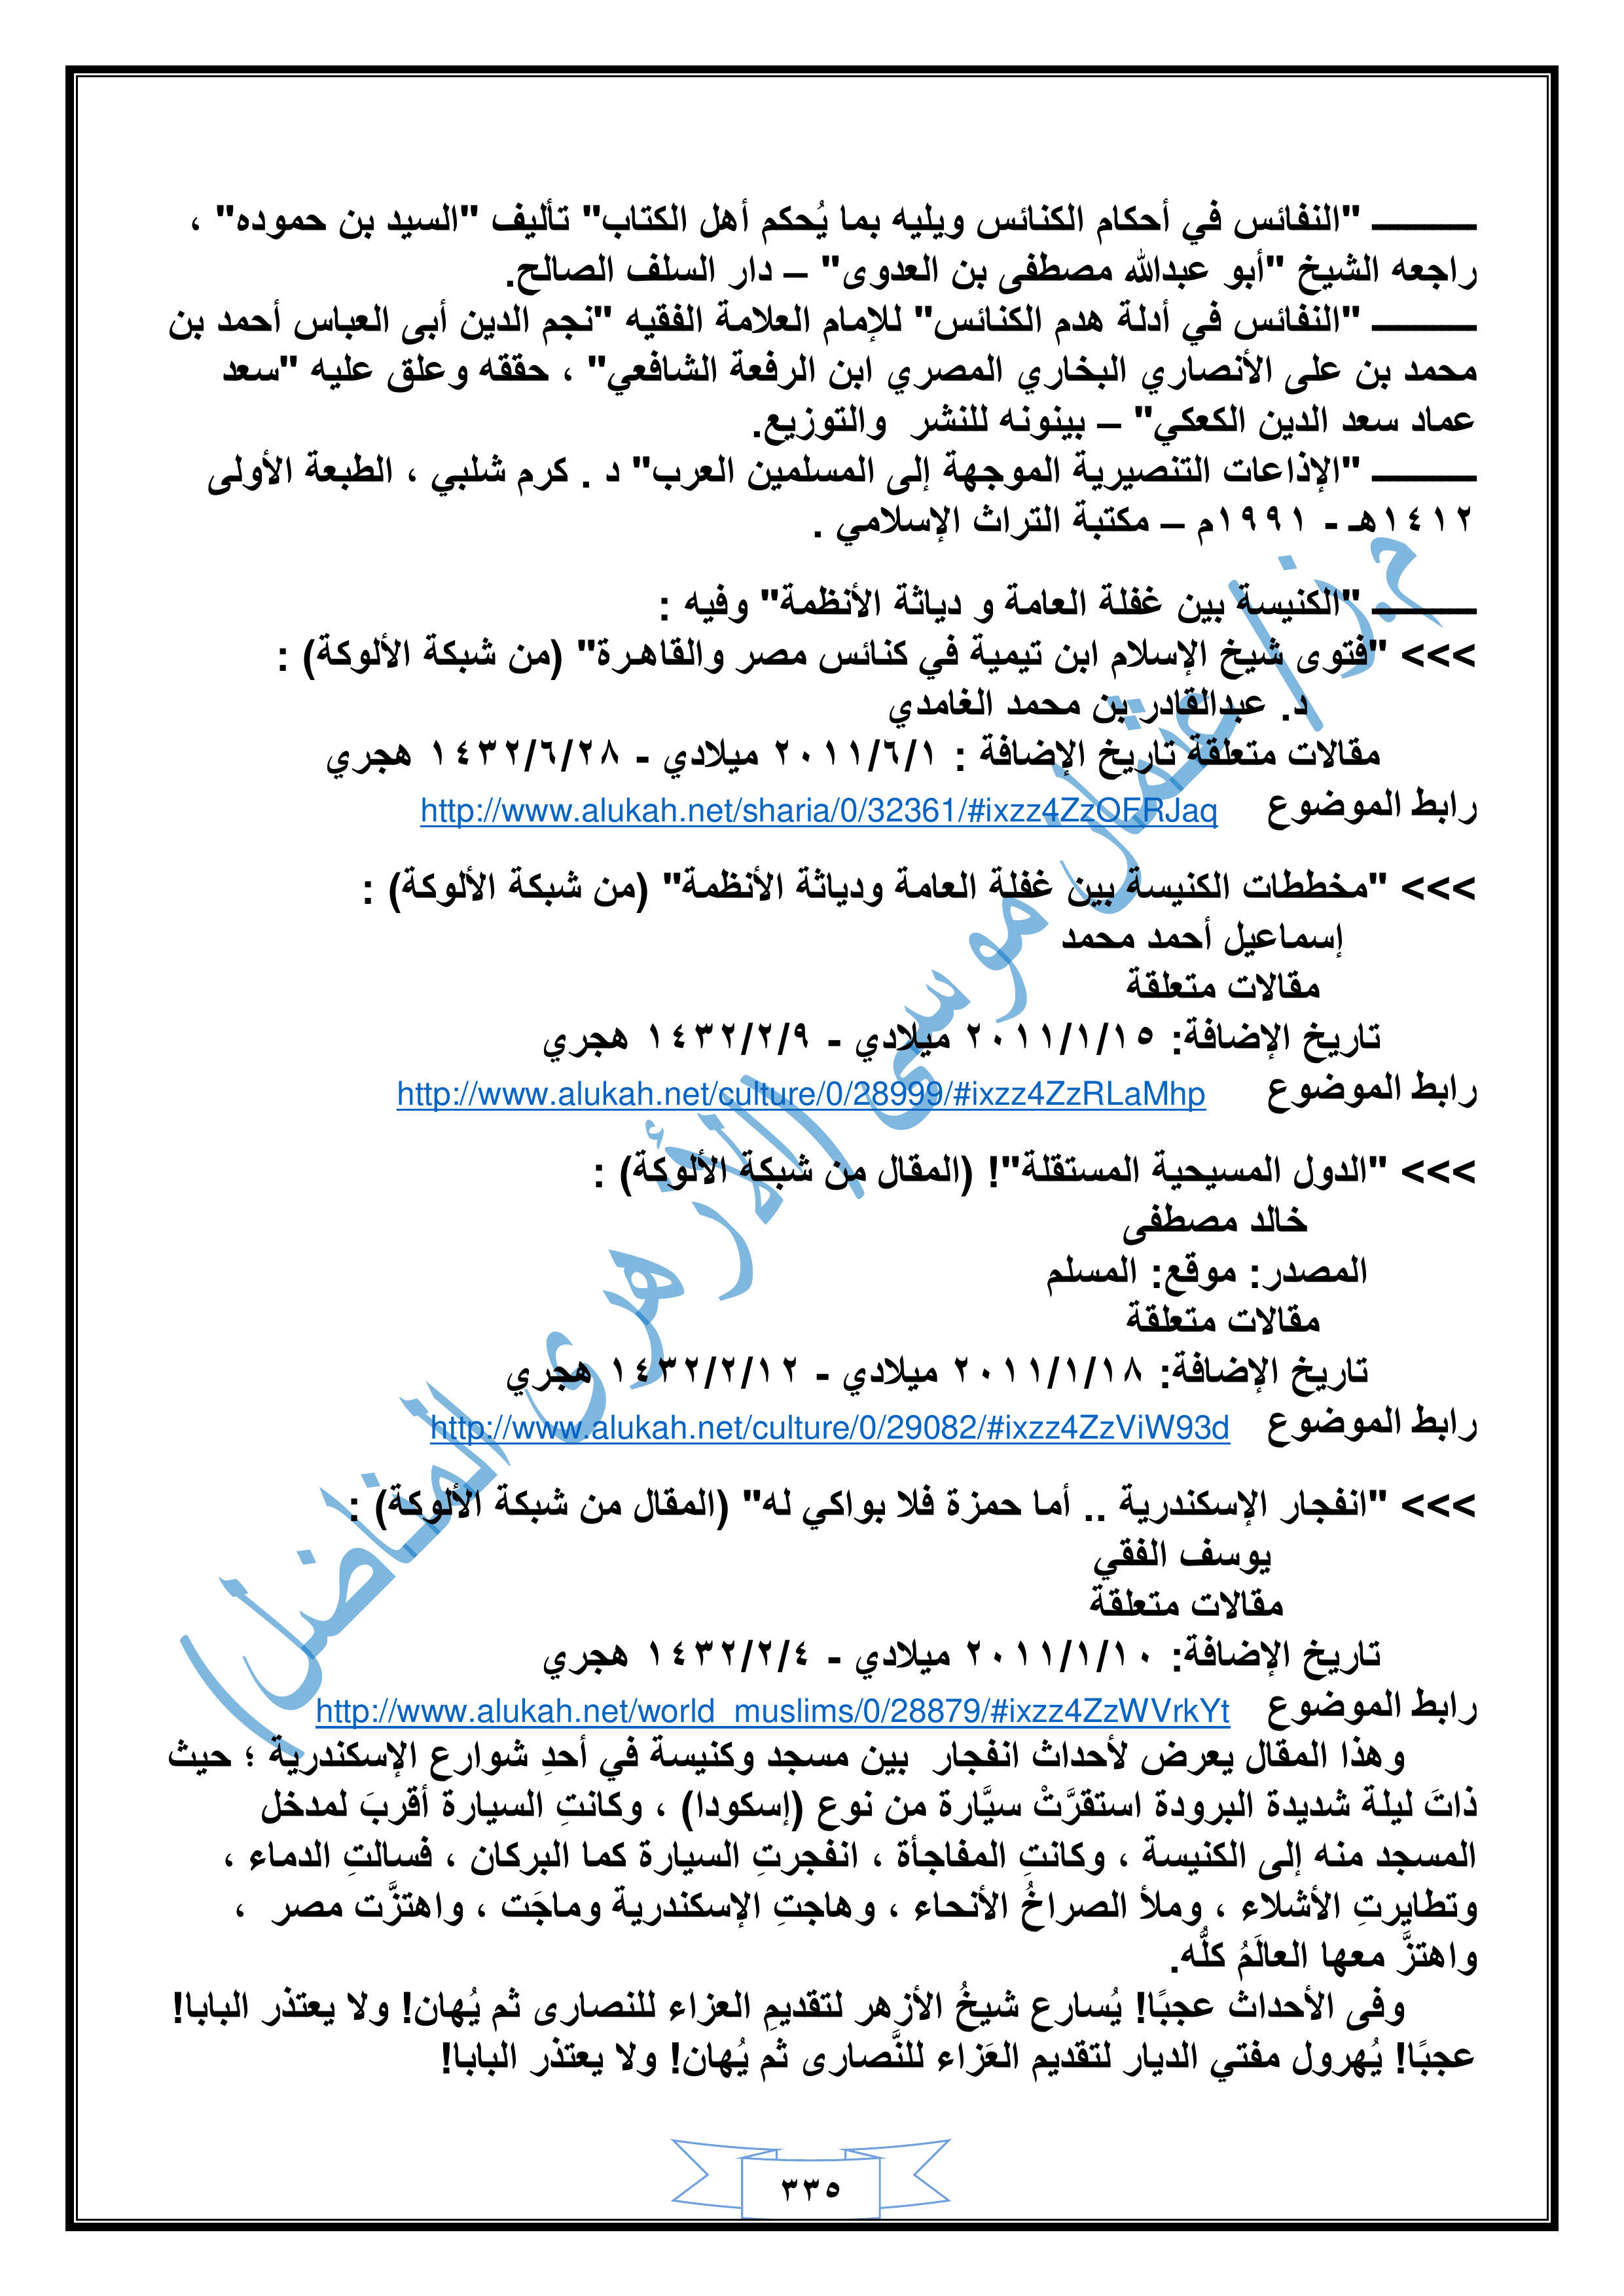 ـــــــــ "النفائس في أحكام الكنائس ويليه بما يُحكم أهل الكتاب" تأليف "السيد بن حموده" ،
راجعه الشيخ "أبو عبدالله مصطفى بن العدوى" – دار السلف الصالح.
ـــــــــ "النفائس في أدلة هدم الكنائس" للإمام العلامة الفقيه "نجم الدين أبى العباس أحمد بن
محمد بن على الأنصاري البخاري المصري ابن الرفعة الشافعي" ، حققه وعلق عليه "سعد
عماد سعد الدين الكعكي" – بينونه للنشر والتوزيع.
ـــــــــ "الإذاعات التنصيرية الموجهة إلى المسلمين العرب" د . كرم شلبي ، الطبعة الأولى
١٤١٢هـ - ١٩٩١م – مكتبة التراث الإسلامي .
ـــــــــ "الكنيسة بين غفلة العامة و دياثة الأنظمة" وفيه :
>>> "فتوى شيخ الإسلام ابن تيمية في كنائس مصر والقاهـرة" (من شبكة الألوكة) :
د. عبدالقادر بن محمد الغامدي
مقالات متعلقة تاريخ الإضافة : ٢٠١١/٦/١ ميلادي - ١٤٣٢/٦/٢٨ هجري
رابط الموضوع http://www.alukah.net/sharia/0/32361/#ixzz4ZzOFRJaq
>>> "مخططات الكنيسة بين غفلة العامة ودياثة الأنظمة" (من شبكة الألوكة) :
إسماعيل أحمد محمد
مقالات متعلقة
تاريخ الإضافة: ٢٠١١/١/١٥ ميلادي - ١٤٣٢/٢/٩ هجري
رابط الموضوع http://www.alukah.net/culture/0/28999/#ixzz4ZzRLaMhp
>>> "الدول المسيحية المستقلة"! (المقال من شبكة الألوكة) :
خالد مصطفى
المصدر: موقع: المسلم
مقالات متعلقة
تاريخ الإضافة: ٢٠١١/١/١٨ ميلادي - ١٤٣٢/٢/١٢ هجري
رابط الموضوع http://www.alukah.net/culture/0/29082/#ixzz4ZzViW93d
>>> "انفجار الإسكندرية .. أما حمزة فلا بواكي له" (المقال من شبكة الألوكة) :
يوسف الفقي
مقالات متعلقة
تاريخ الإضافة: ٢٠١١/١/١٠ ميلادي - ١٤٣٢/٢/٤ هجري
رابط الموضوع http://www.alukah.net/world_muslims/0/28879/#ixzz4ZzWVrkYt
وهذا المقال يعرض لأحداث انفجار بين مسجد وكنيسة في أحدِ شوارع الإسكندرية ؛ حيث
ذاتَ ليلة شديدة البرودة استقرَّتْ سيَّارة من نوع (إسكودا) ، وكانتِ السيارة أقربَ لمدخل
المسجد منه إلى الكنيسة ، وكانتِ المفاجأة ، انفجرتِ السيارة كما البركان ، فسالتِ الدماء ،
وتطايرتِ الأشلاء ، وملأ الصراخُ الأنحاء ، وهاجتِ الإسكندرية وماجَت ، واهتزَّت مصر ،
واهتزَّ معها العالَمُ كلُّه.
وفى الأحداث عجبًا! يُسارع شيخُ الأزهر لتقديمِ العزاء للنصارى ثم يُهان! ولا يعتذر البابا!
عجبًا! يُهرول مفتي الديار لتقديم العَزاء للنَّصارى ثم يُهان! ولا يعتذر البابا!
٣٣٥
عثمان موسى (الأزهرى المناضل)